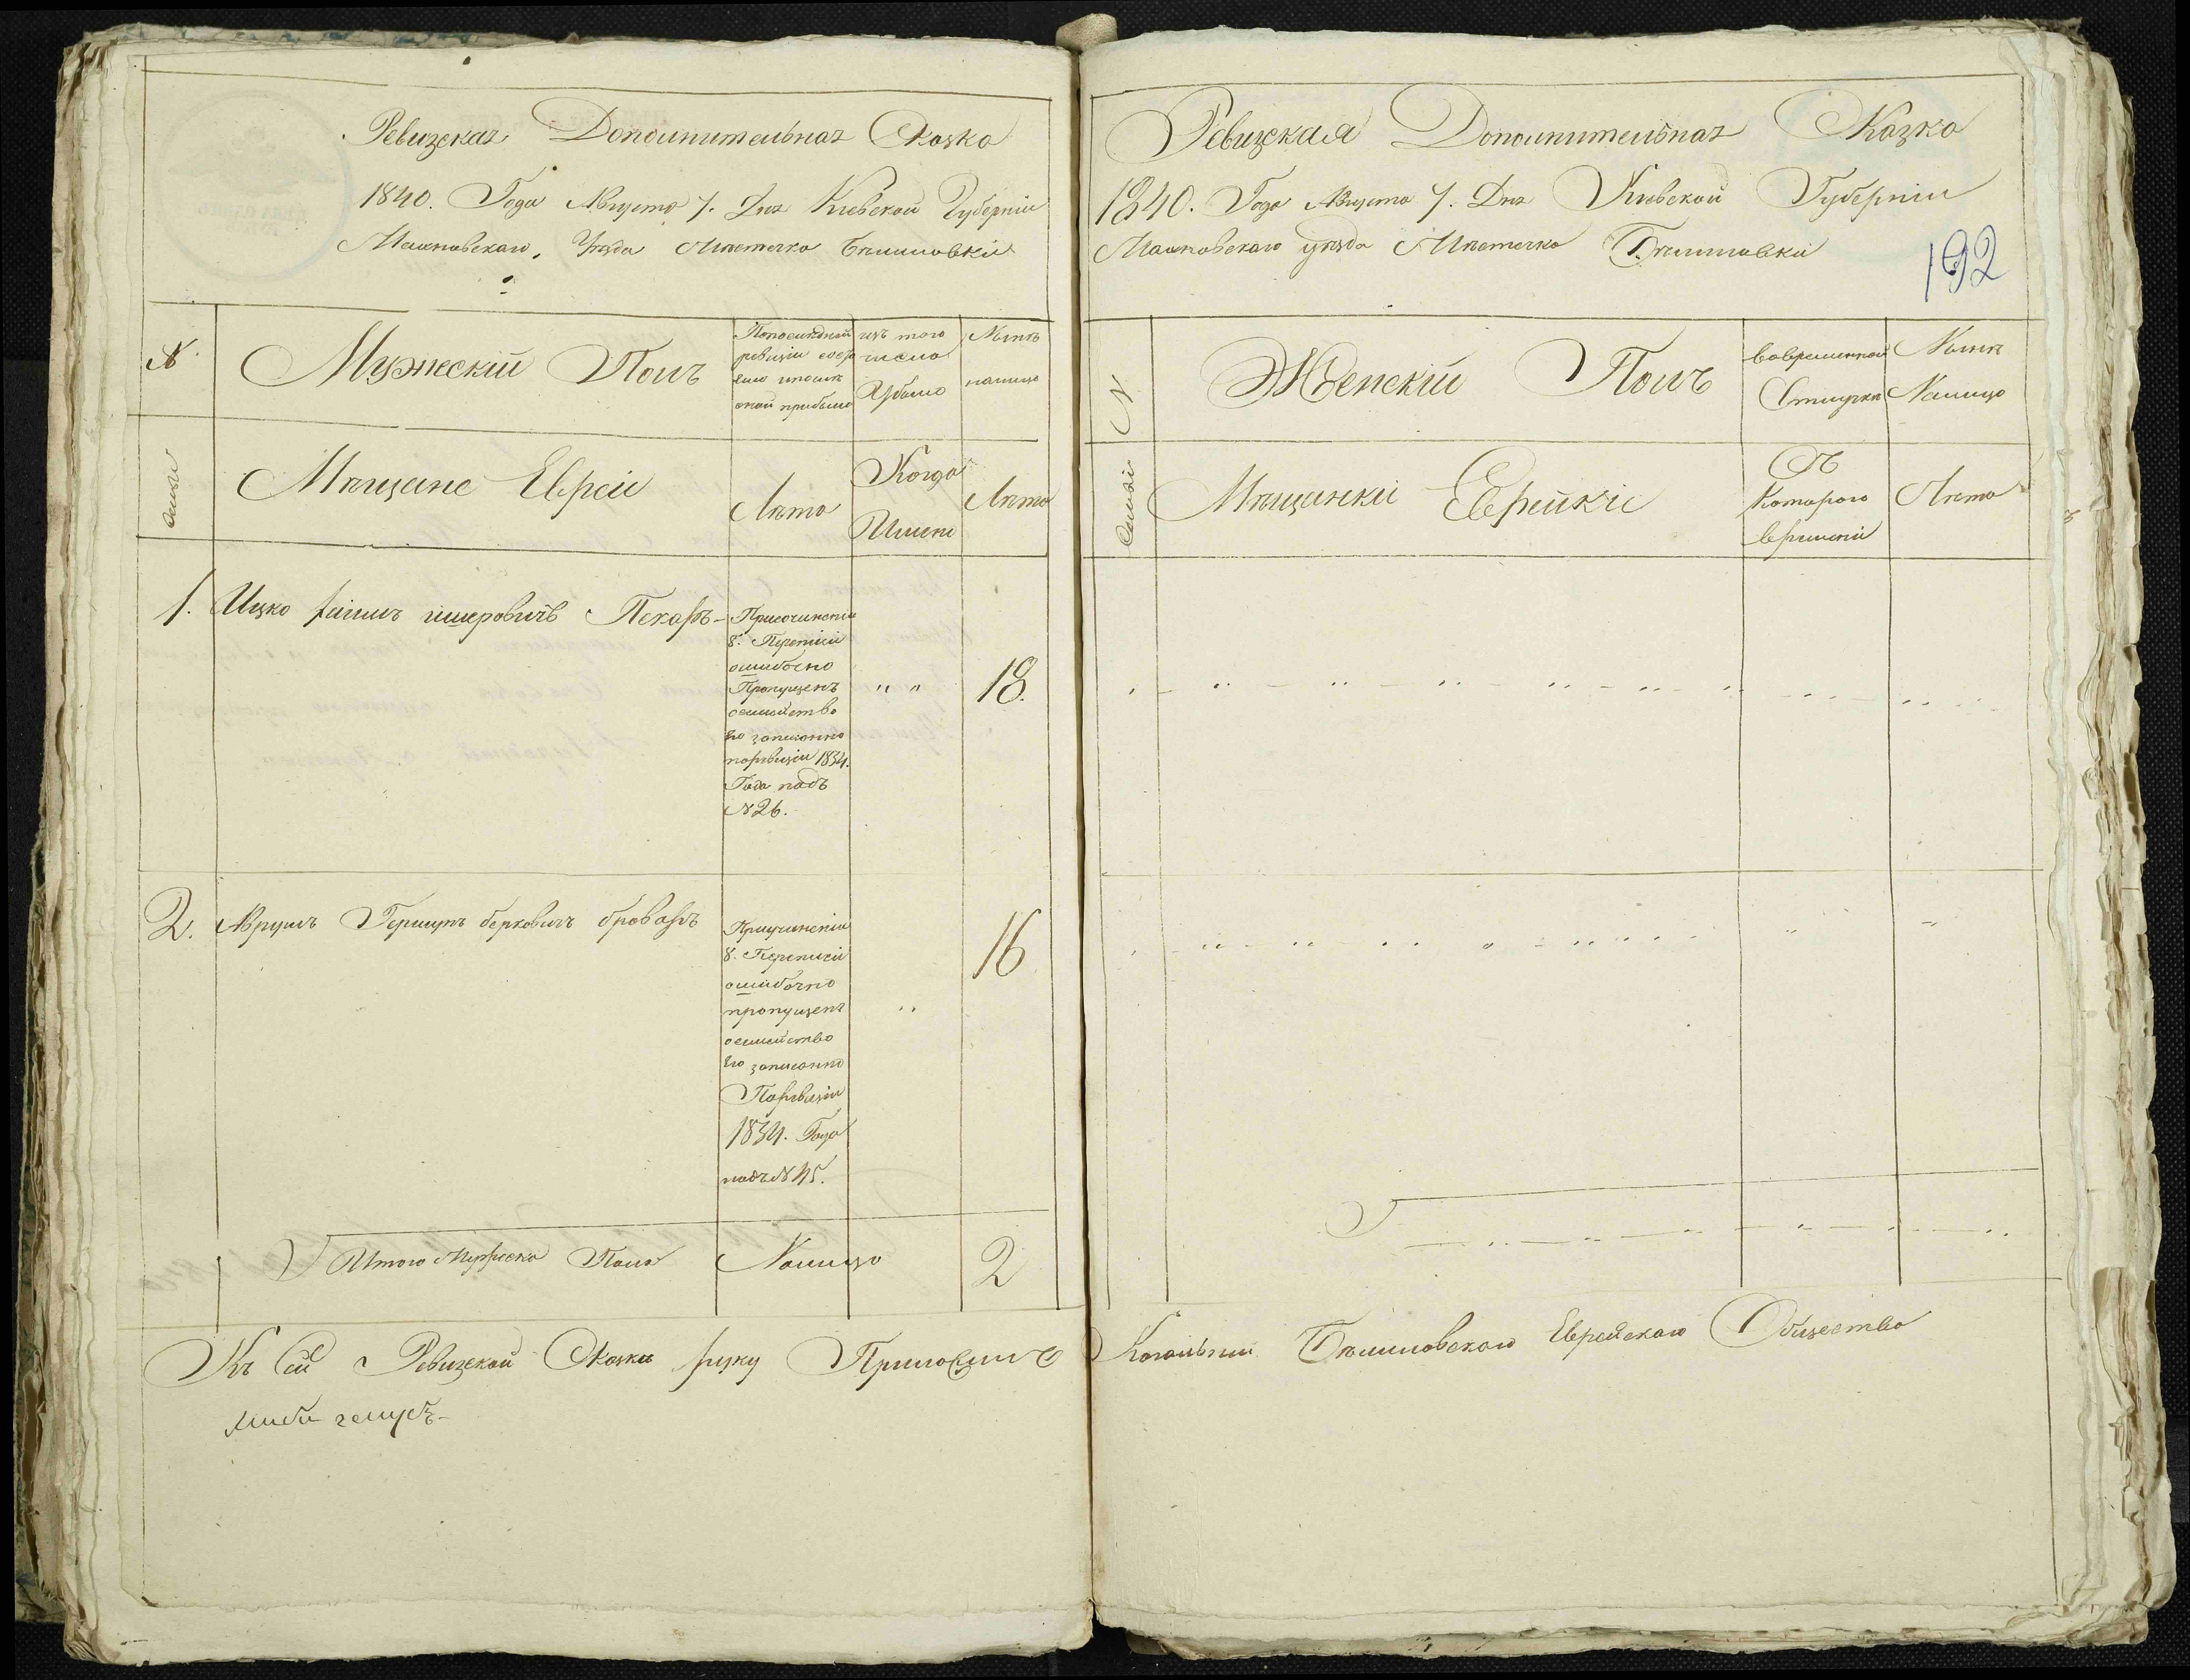 Ревизская Дополнительная Сказка
1840. Года Августа 7. Дня Киевской Губерніи
Махновскаго, Уѣзда Мѣстечка Бѣлиловки
№
Мужескій Полъ
Попоследней
ревизіи состо
яло ипослѣ
оной прибыло
изъ того
числа
Убыло
Нынѣ
налицо
Семьи
Мѣщане Евреи
Лѣта
Когда
Имено
Лѣта
1. Ицко Хаимъ Ушеровичъ Пекарь
Присочиненіи
8. Переписи
ошибочно
Пропущенъ
семейство
его записанно
поревизіи 1834.
Года подъ
№ 26.
" "
18.
2. Аврумъ Гершунъ берковичъ броваръ
Присочиненіи
8. Переписи
ошибочно
пропущенъ
семейство
его записанно
Поревизіи
1834. Года
подъ № 45.
"
16
Итого Мужеска Пола Налицо 2
Къ сей Ревизской Сказки руку Приложилъ
192
Ревизская Дополнительная Сказка
1840. Года Августа 7. Дня Киевской Губерніи
Махновскаго уѣзда Мѣстечка Бѣлиловки
№
Женскій Полъ
Вовременной
Отлучки
Нынѣ
Налицо
Семьи
Мѣщанки Еврейки
Съ
Котораго
времени
Лѣта
Кагальный Бѣлиловскаго Еврейскаго Общества